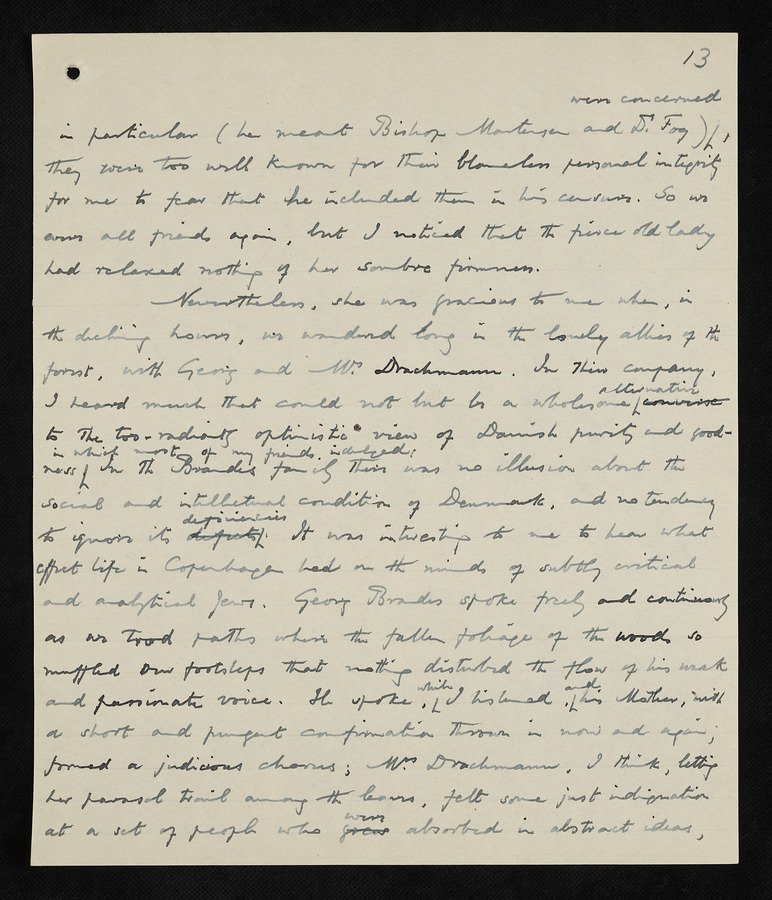 13
were concerned
in particular (he meant Bishop Martensen and Dr. Fog),
they were too well known for their blameless personal integrity
for me to fear that he included them in his censure. So we
were all friends again, but I noticed that the fierce old lady
had relaxed nothing of her sombre firmness.
Nevertheless, she was gracious to me when, in
the declining hours, we wandered long in the lonely allies of the
forest, with Georg and Mrs Drachmann. In their company,
alternative
I heard much that could not but be a wholesome converse
to the too-radiantly optimistic view of Danish purity and good-
in which most of my friends indulged.
ness. In the Brandes family there was no illusion about the
social and intellectual condition of Denmark, and no tendency
deficiencies
to ignore its defects. It was interesting to me to hear what
effect life in Copenhagen had on the minds of subtly critical
and analytical Jews. Georg Brandes spoke freely and continuously
as we trod paths where the fallen foliage of the woods so
muffled our footsteps that nothing disturbed the flow of his weak
and passionate voice. He spoke, while I listened, and his Mother, with
a short and pungent confirmation thrown in now and again,
formed a judicious chorus; Mrs Drachmann, I think, letting
her parasol trail among the leaves, felt some just indignation
were
at a set of people who grew absorbed in abstract ideas,